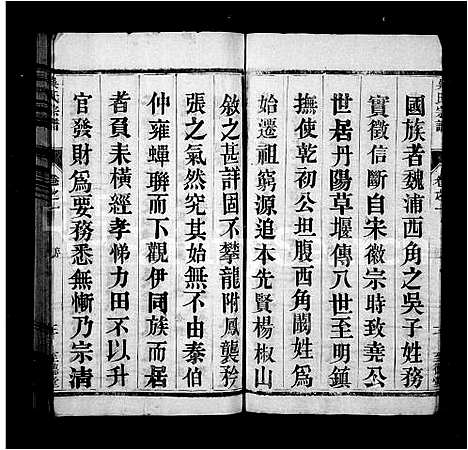 國族者魏浦西角之吳子姓務
實徵信斷自宋徽宗時致堯公
世居丹陽草堰傳八世至明鎮
撫使乾初公坦腹西角闞姓為
始遷祖窮源追本先賢楊椒山
敘之甚詳固不攀龍附鳳襲矜
張之氣然究其始無不由泰伯
仲雍蟬聯而下觀伊同族而居
者負耒橫經孝悌力田不以升
官發財為要務悉無慚乃宗清
吳氏宗譜
卷之一